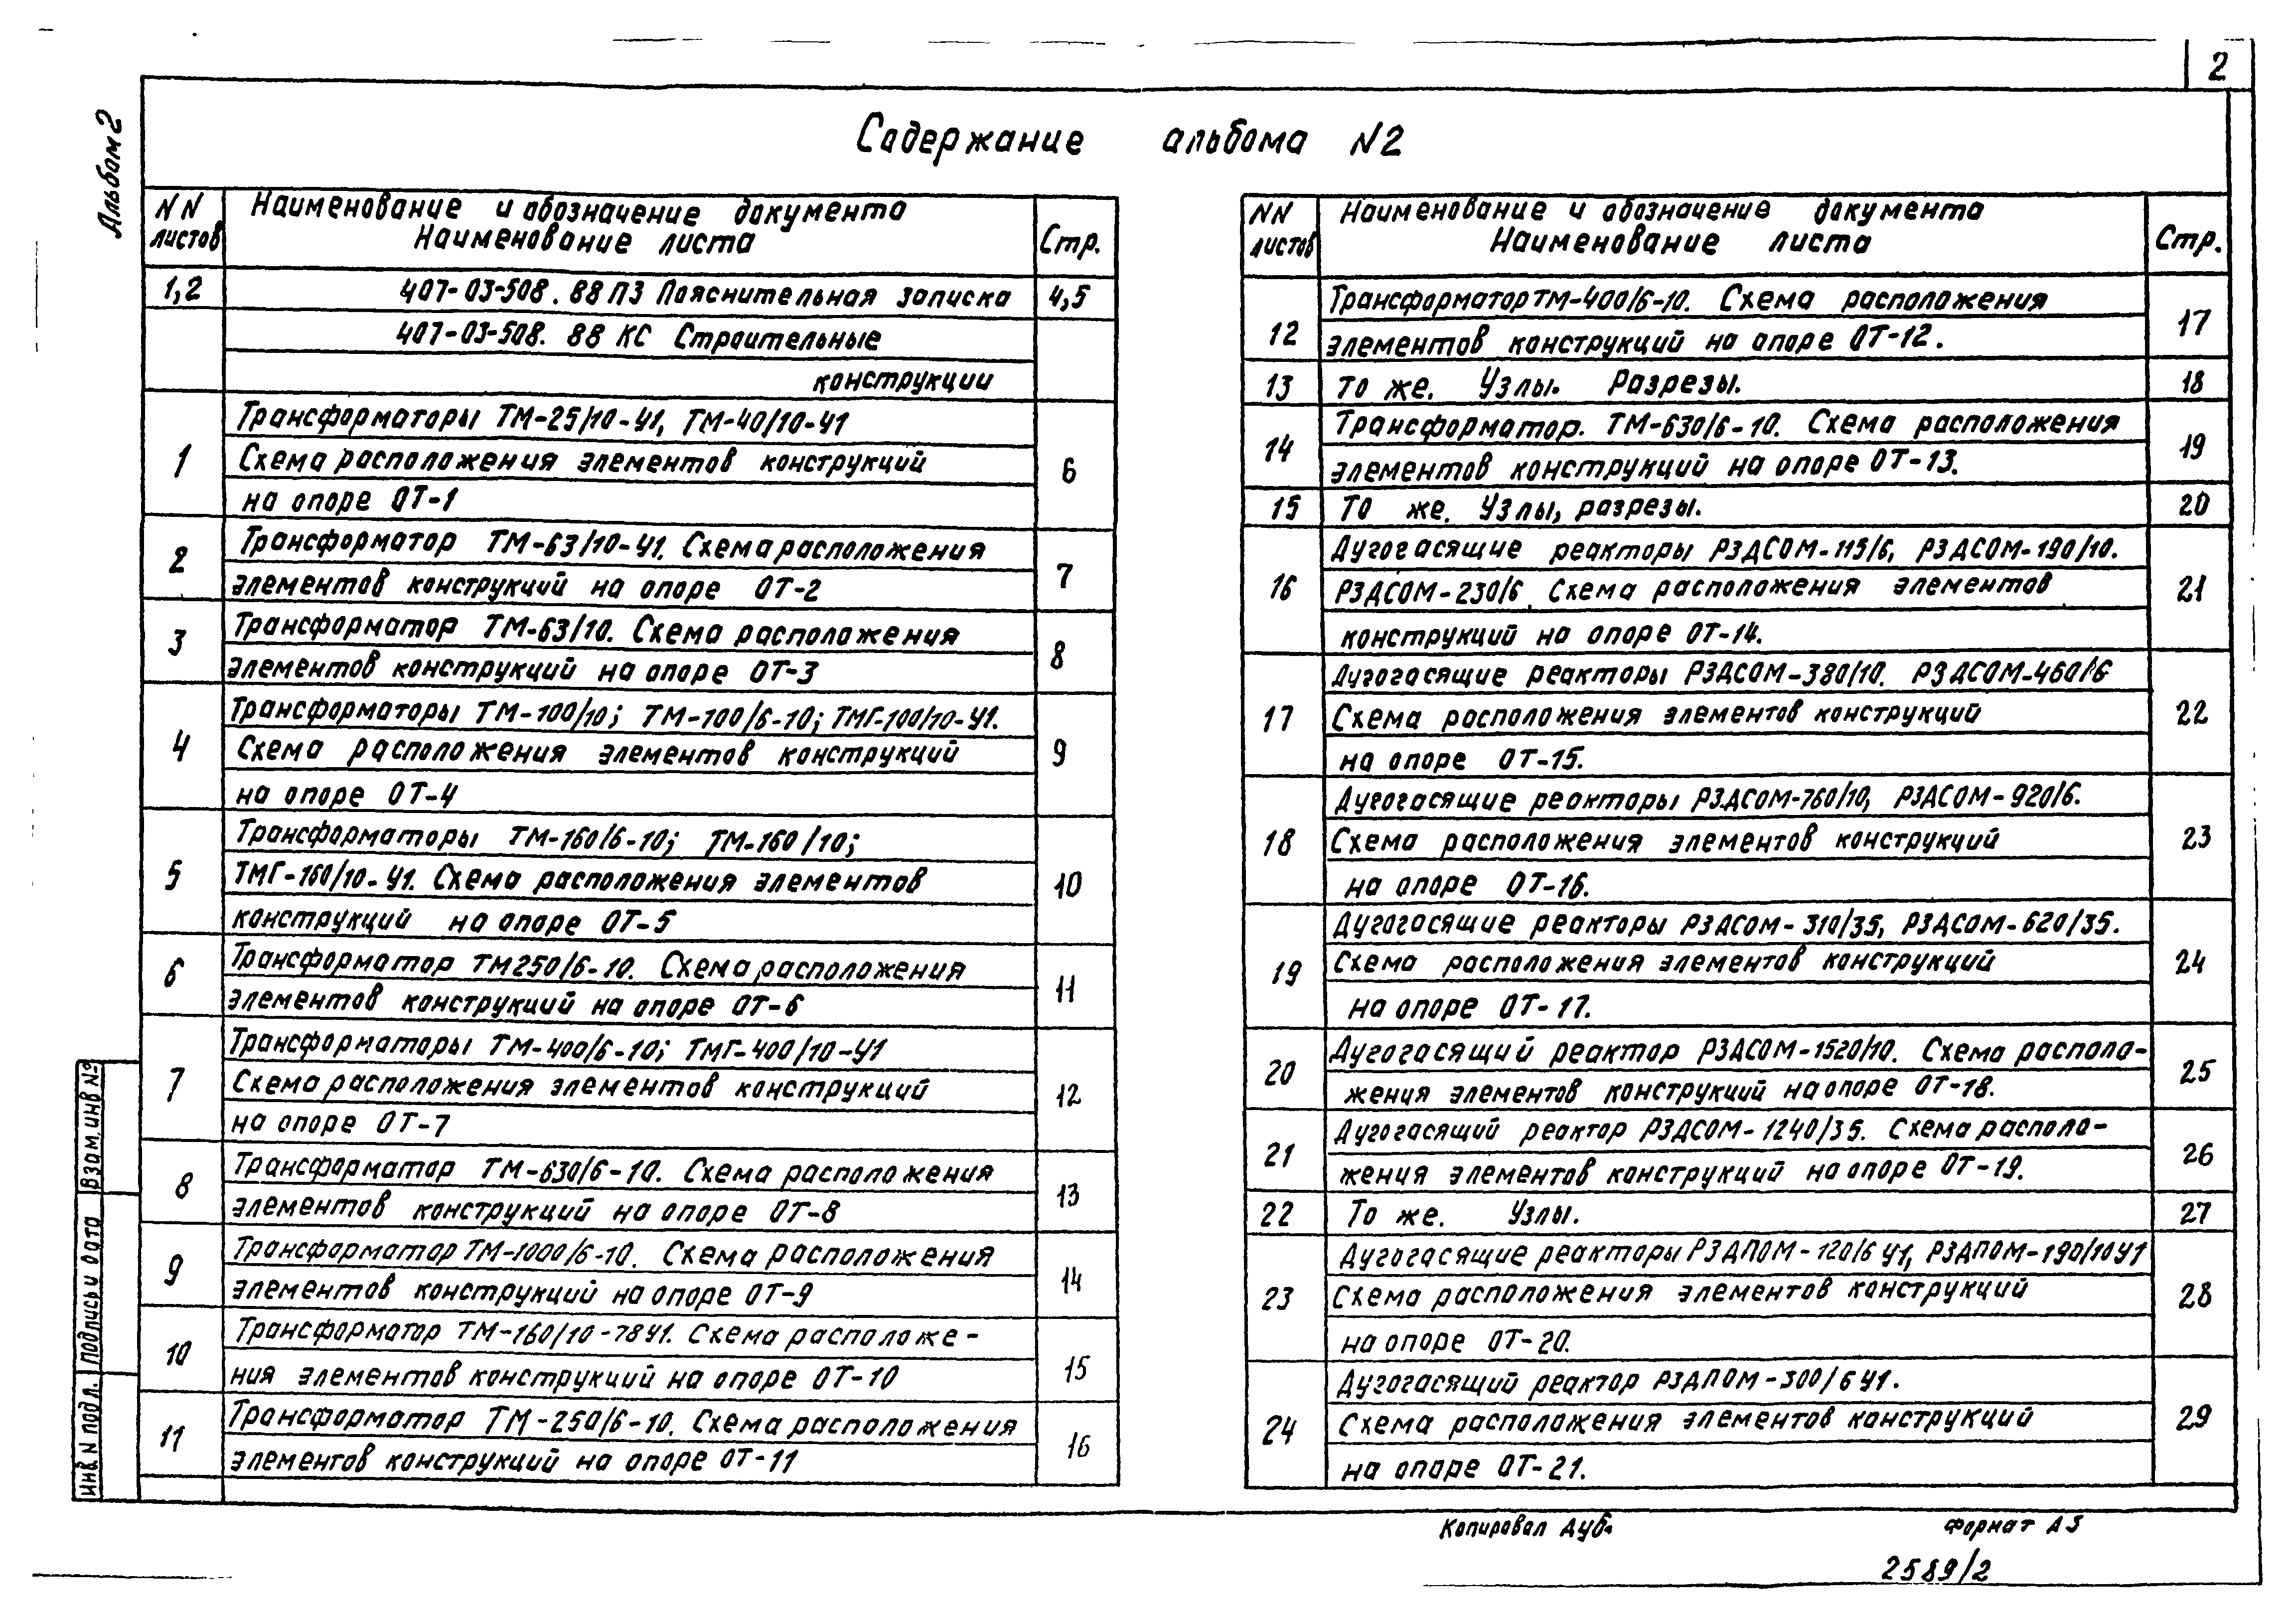 2
Альбом 2
Содержание альбома N2
NN листов
Наименование и обозначение документа
Наименование листа
Стр.
1,2 407-03-508.88 ПЗ Пояснительная записка 4,5
407-03-508.88 КС Строительные
конструкции
Трансформаторы ТМ-25/10-У1, ТМ-40/10-У1
1 Схема расположения элементов конструкций 6
на опоре ОТ-1
2 Трансформатор ТМ-63/10-У1. Схема расположения 7
элементов конструкций на опоре ОТ-2
3 Трансформатор ТМ-63/10. Схема расположения 8
элементов конструкций на опоре ОТ-3
Трансформаторы ТМ-100/10; ТМ-100/6-10; ТМГ-100/10-У1.
4 Схема расположения элементов конструкций 9
на опоре ОТ-4
Трансформаторы ТМ-160/6-10; ТМ-160/10;
5 ТМГ-160/10-У1. Схема расположения элементов 10
конструкций на опоре ОТ-5
6 Трансформатор ТМ250/6-10. Схема расположения 11
элементов конструкций на опоре ОТ-6
Трансформаторы ТМ-400/6-10; ТМГ-400/10-У1
7 Схема расположения элементов конструкций 12
на опоре ОТ-7
8 Трансформатор ТМ-630/6-10. Схема расположения 13
элементов конструкций на опоре ОТ-8
9 Трансформатор ТМ-1000/6-10. Схема расположения 14
элементов конструкций на опоре ОТ-9
10 Трансформатор ТМ-160/10-78У1. Схема расположе- 15
ния элементов конструкций на опоре ОТ-10
11 Трансформатор ТМ-250/6-10. Схема расположения 16
элементов конструкций на опоре ОТ-11
NN листов
Наименование и обозначение документа
Наименование листа
Стр.
12 Трансформатор ТМ-400/6-10. Схема расположения 17
элементов конструкций на опоре ОТ-12.
13 То же. Узлы. Разрезы. 18
14 Трансформатор. ТМ-630/6-10. Схема расположения 19
элементов конструкций на опоре ОТ-13.
15 То же. Узлы, разрезы. 20
Дугогасящие реакторы РЗДСОМ-115/6, РЗДСОМ-190/10.
16 РЗДСОМ-230/6. Схема расположения элементов 21
конструкций на опоре ОТ-14.
Дугогасящие реакторы РЗДСОМ-380/10. РЗДСОМ-460/6
17 Схема расположения элементов конструкций 22
на опоре ОТ-15.
Дугогасящие реакторы РЗДСОМ-760/10, РЗДСОМ-920/6.
18 Схема расположения элементов конструкций 23
на опоре ОТ-16.
Дугогасящие реакторы РЗДСОМ-310/35, РЗДСОМ-620/35.
19 Схема расположения элементов конструкций 24
на опоре ОТ-17.
20 Дугогасящий реактор РЗДСОМ-1520/10. Схема располо- 25
жения элементов конструкций на опоре ОТ-18.
21 Дугогасящий реактор РЗДСОМ-1240/35. Схема располо- 26
жения элементов конструкций на опоре ОТ-19.
22 То же. Узлы. 27
Дугогасящие реакторы РЗДПОМ-120/6 У1, РЗДПОМ-190/10У1
23 Схема расположения элементов конструкций 28
на опоре ОТ-20.
Дугогасящий реактор РЗДПОМ-300/6 У1.
24 Схема расположения элементов конструкций 29
на опоре ОТ-21.
Взам. инв №
Подпись и дата
Инв. N подл.
Копировал Дуб.
Формат А3
2589/2